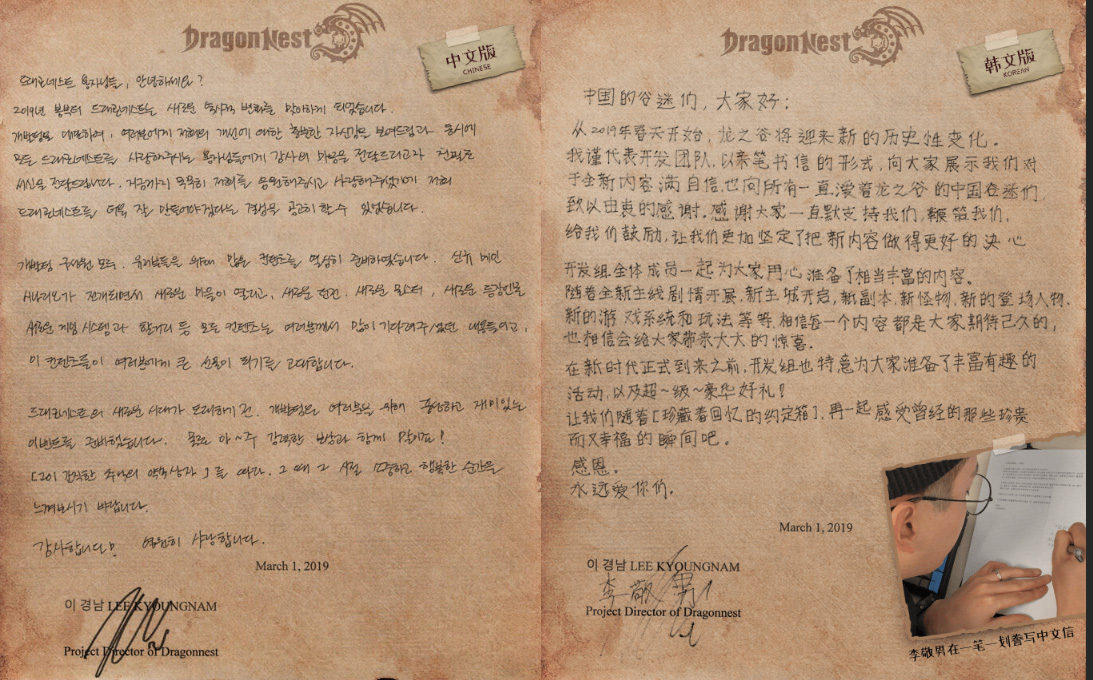 DragonNest
中文版
CHINESE
드래곤네스트 용자님들, 안녕하세요?
2019년 봄부터 드래곤네스트는 새로운 역사적 변화를 맞이하게 되었습니다.
개발팀을 대표하여, 여러분에게 저희의 개선에 대한 충분한 자신감을 보여드리고자 동시에
모든 드래곤네스트를 사랑해주시는 용자님들에게 감사의 마음을 전달드리고자 친필로
서신을 전달드립니다. 지금까지 묵묵히 저희를 응원해주시고 사랑해주셨기에 저희
드래곤네스트를 더욱 잘 만들어야겠다는 결심을 공고히 할 수 있었습니다.
개발팀 구성원 모두, 유저분들을 위해 많은 컨텐츠를 열심히 준비하였습니다. 신규 메인
시나리오가 전개되면서 새로운 마을이 열리고, 새로운 던전, 새로운 몬스터, 새로운 등장인물
새로운 게임 시스템과 할거리 등 모든 컨텐츠는 여러분께서 많이 기다려주셨던 내용들이고,
이 컨텐츠들이 여러분에게 큰 선물이 되기를 고대합니다.
드래곤네스트의 새로운 시대가 도래하기 전, 개발팀은 여러분을 위해 풍성하고 재미있는
이벤트를 준비했습니다. 물론 아~주 강력한 보상과 함께 말이죠!
[ 추억의 약속상자 ]를 따라, 그 때 그 시절 소중하고 행복한 순간을
느껴보시기 바랍니다.
감사합니다! 영원히 사랑합니다.
March 1, 2019
이 경남 LEE KYOUNGNAM
Project Director of Dragonnest
DragonNest
韩文版
KOREAN
中国的谷迷们，大家好：
从2019年春天开始，龙之谷将迎来新的历史性变化。
我谨代表开发团队，以亲笔书信的形式，向大家展示我们对
于全新内容满自信，也向所有一直爱着龙之谷的中国谷迷们，
致以由衷的感谢。感谢大家一直默支持我们，鞭策我们，
给我们鼓励，让我们更加坚定了把新内容做得更好的决心
开发组全体成员一起为大家用心准备了相当丰富的内容。
随着全新主线剧情开展，新主城开启，新副本，新怪物，新的登场人物，
新的游戏系统和玩法等等，相信每一个内容都是大家期待已久的，
也相信会给大家带来大大的惊喜。
在新时代正式到来之前，开发组也特意为大家准备了丰富有趣的
活动，以及超~级~豪华好礼！
让我们随着[珍藏着回忆的约定箱]，再一起感受曾经的那些珍贵
而又幸福的瞬间吧。
感恩。
永远爱你们。
March 1, 2019
이 경남 LEE KYOUNGNAM
李敬男
Project Director of Dragonnest
李敬男在一笔一划书写中文信